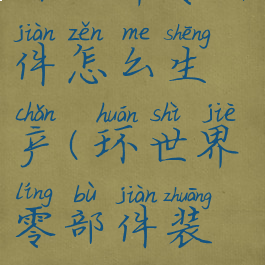 jiàn zěn me shēng
件怎么生
chǎn huán shì jiè
产（环世界
líng bù jiàn zhuāng
零部件装